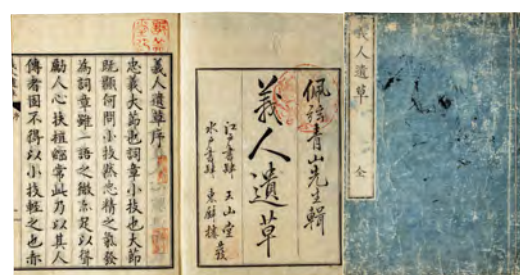 義人遺草 全
佩弦青山先生輯
義人遺草
江戸書肆 玉山堂
水戸書肆 東壁樓 發
義人遺草序
忠義大節也詞章小技也大節
既顯何問小技然忠精之氣發
為詞章雖一語之微亦足以聳
勵人心扶植綱常此乃以其人
傳者固不得以小技輕之也亦